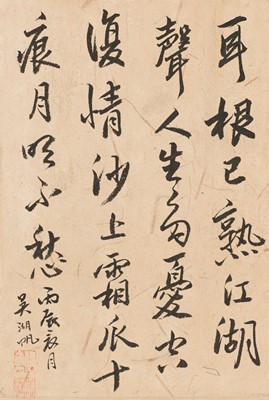 耳根已熟江湖
聲人生憂
復情沙上霜爪十
痕月不愁
丙辰月
吳湖帆